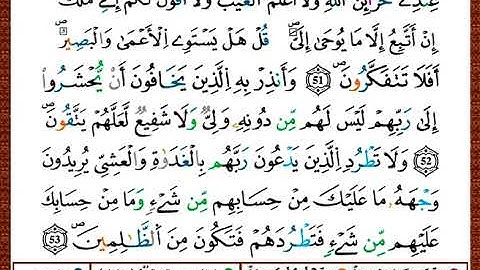 عِندِے خَزَآئِنُ اللَّهِ وَلَا أَعْلَمُ الْغَيْبَ وَلَا أَقُولُ لَكُمْ إِنِّے مَلَكٌ
إِنْ أَتَّبِعُ إِلَّا مَا يُوحَىٰ إِلَيَّ قُلْ هَلْ يَسْتَوِے الْأَعْمَىٰ وَالْبَصِيرُ
أَفَلَا تَتَفَكَّرُونَ 51 وَأَنذِرْ بِهِ الَّذِينَ يَخَافُونَ أَنْ يُحْشَرُوا
إِلَىٰ رَبِّهِمْ لَيْسَ لَهُم مِّن دُونِهِ وَلِيٌّ وَلَا شَفِيعٌ لَّعَلَّهُمْ يَتَّقُونَ
52 وَلَا تَطْرُدِ الَّذِينَ يَدْعُونَ رَبَّهُم بِالْغَدَوٰةِ وَالْعَشِيِّ يُرِيدُونَ
وَجْهَهُ مَا عَلَيْكَ مِنْ حِسَابِهِم مِّن شَےْءٍ وَمَا مِنْ حِسَابِكَ
عَلَيْهِم مِّن شَےْءٍ فَتَطْرُدَهُمْ فَتَكُونَ مِنَ الظَّٰلِمِينَ 53